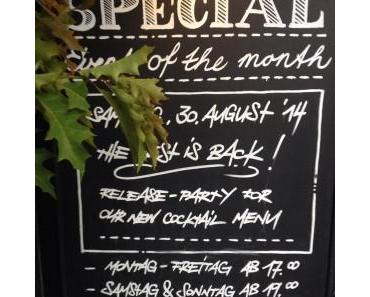 SPECIAL
of the month
30. AUGUST '14
THE IS BACK!
RELEASE-PARTY FOR
OUR NEW COCKTAIL MENU
- MONTAG - FREITAG AB 17.00
- SAMSTAG & SONNTAG AB 19.00